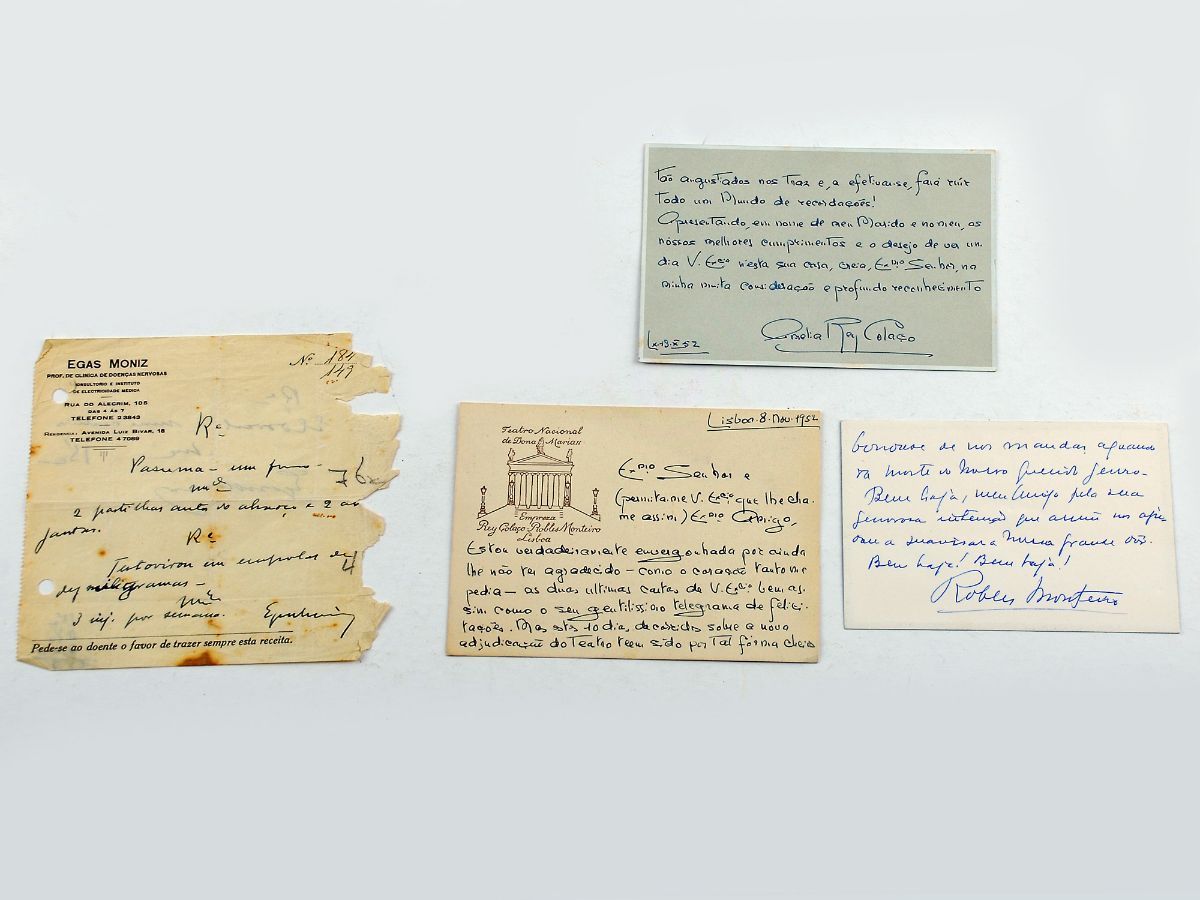 EGAS MONIZ
PROF. DE CLINICA DE DOENÇAS NERVOSAS
CONSULTORIO E INSTITUTO
DE ELECTRICIDADE MEDICA
RUA DO ALEGRIM, 105
DAS 4 ÀS 7
TELEFONE 23843
RESIDENCIA: AVENIDA LUIZ BIVAR, 18
TELEFONE 47069
Nº 184
149
Rᵉ
um
2 antes do almoço e 2 ao
jantar.
Rᵉ
em empolas de
miligramas —
3 inj. por semana.
Pede-se ao doente o favor de trazer sempre esta receita.
Tão angustiados nos traz e, a efetivar-se, fará ruir
todo um Mundo de recordações!
Apresentando, em nome de meu Marido e no meu, os
nossos melhores cumprimentos e o desejo de ver um
dia V. Exciª n'esta sua casa, creia, Exmo Senhor, na
minha muita consideração e profundo reconhecimento
Amelia Rey Colaço
Lx-13-XI-52
Lisboa-8-Nov-1952
Teatro Nacional
de Dona Maria II
Empreza
Rey Colaço-Robles Monteiro
Lisboa
Exmo Senhor e
(permita-me V. Exciª que lhe cha-
me assim) Exmo Amigo,
Estou verdadeiramente envergonhada por ainda
lhe não ter agradecido — como o coração tanto me
pedia — as duas ultimas cartas de V. Exciª bem as-
sim como o seu gentilissimo telegrama de felici-
tações. Mas estes 10 dias, decorridos sobre a nova
adjudicação do Teatro teem sido por tal fórma cheios
de nos mandar
morte do nosso querido Genro.
Bem haja, meu Amigo pela sua
generosa intenção que assim nos
a suavisar a nossa grande dôr.
Bem haja! Bem haja!
Robles Monteiro